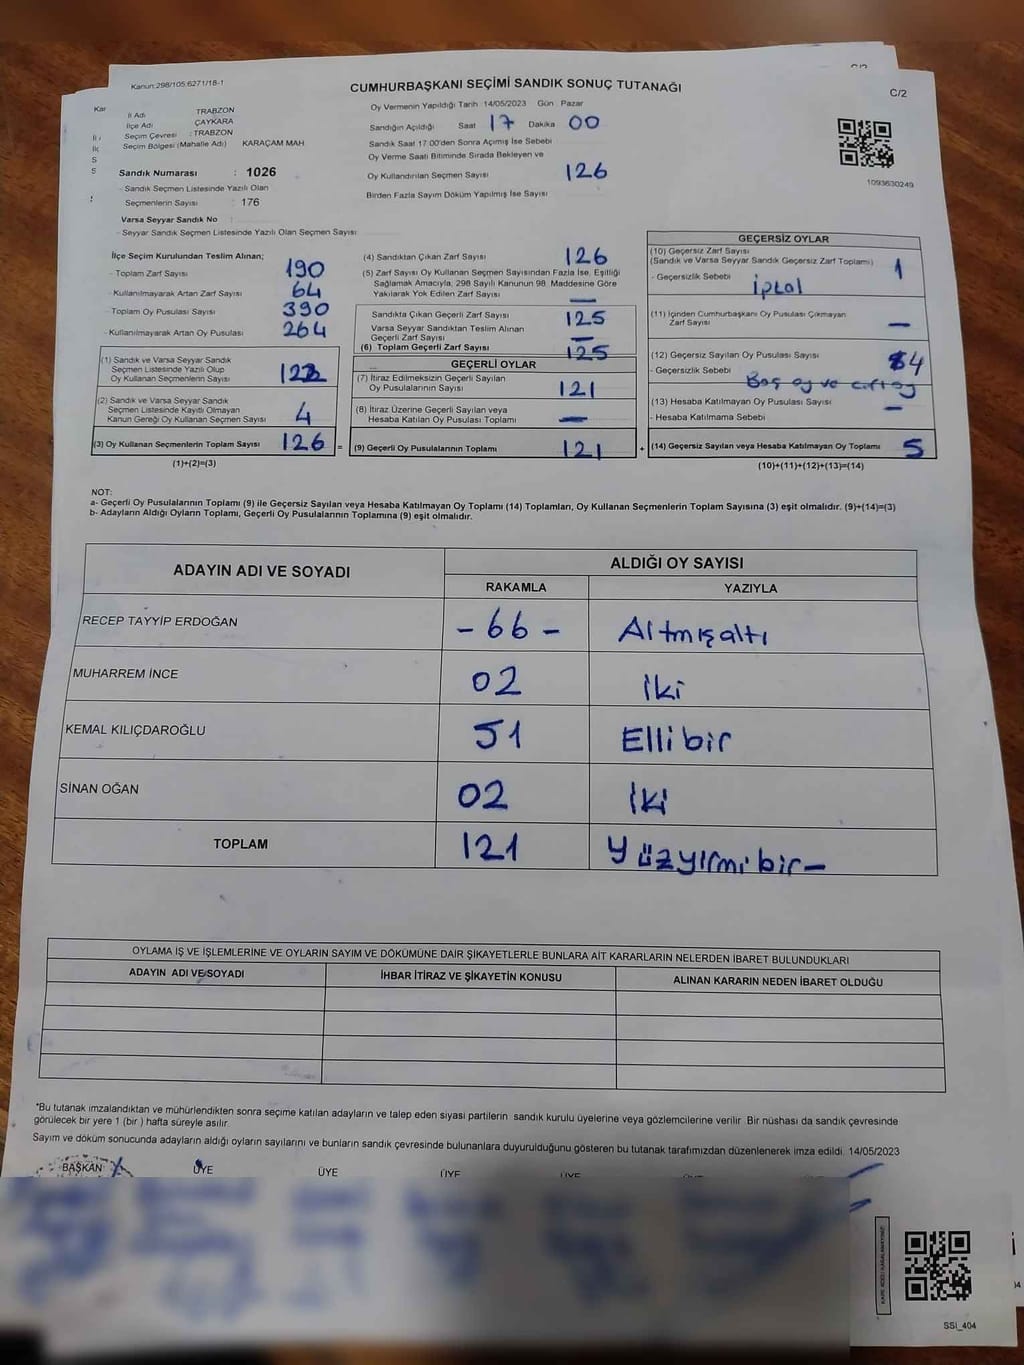 Kanun:298/105;6271/18-1
CUMHURBAŞKANI SEÇİMİ SANDIK SONUÇ TUTANAĞI
C/2
İl Adı TRABZON
İlçe Adı ÇAYKARA
Seçim Çevresi : TRABZON
Seçim Bölgesi (Mahalle Adı) KARAÇAM MAH
Sandık Numarası : 1026
- Sandık Seçmen Listesinde Yazılı Olan
Seçmenlerin Sayısı : 176
Varsa Seyyar Sandık No :
- Seyyar Sandık Seçmen Listesinde Yazılı Olan Seçmen Sayısı
Oy Vermenin Yapıldığı Tarih 14/05/2023 Gün Pazar
Sandığın Açıldığı Saat 17 Dakika 00
Sandık Saat 17:00'den Sonra Açımış İse Sebebi
Oy Verme Saati Bitiminde Sırada Bekleyen ve
Oy Kullandırılan Seçmen Sayısı 126
Birden Fazla Sayım Döküm Yapılmış İse Sayısı
1093630249
İlçe Seçim Kurulundan Teslim Alınan;
- Toplam Zarf Sayısı 190
- Kullanılmayarak Artan Zarf Sayısı 64
- Toplam Oy Pusulası Sayısı 390
- Kullanılmayarak Artan Oy Pusulası 264
(1) Sandık ve Varsa Seyyar Sandık
Seçmen Listesinde Yazılı Olup
Oy Kullanan Seçmenlerin Sayısı
(2) Sandık ve Varsa Seyyar Sandık
Seçmen Listesinde Kayıtlı Olmayan
Kanun Gereği Oy Kullanan Seçmen Sayısı 4
(3) Oy Kullanan Seçmenlerin Toplam Sayısı 126 =
(1)+(2)=(3)
(4) Sandıktan Çıkan Zarf Sayısı 126
(5) Zarf Sayısı Oy Kullanan Seçmen Sayısından Fazla İse, Eşitliği
Sağlamak Amacıyla, 298 Sayılı Kanunun 98. Maddesine Göre
Yakılarak Yok Edilen Zarf Sayısı —
Sandıkta Çıkan Geçerli Zarf Sayısı 125
Varsa Seyyar Sandıktan Teslim Alınan
Geçerli Zarf Sayısı —
(6) Toplam Geçerli Zarf Sayısı 125
GEÇERLİ OYLAR
(7) İtiraz Edilmeksizin Geçerli Sayılan
Oy Pusulalarının Sayısı 121
(8) İtiraz Üzerine Geçerli Sayılan veya
Hesaba Katılan Oy Pusulası Toplamı —
(9) Geçerli Oy Pusulalarının Toplamı 121 +
GEÇERSİZ OYLAR
(10) Geçersiz Zarf Sayısı
(Sandık ve Varsa Seyyar Sandık Geçersiz Zarf Toplamı) 1
- Geçersizlik Sebebi İptal
(11) İçinden Cumhurbaşkanı Oy Pusulası Çıkmayan
Zarf Sayısı —
(12) Geçersiz Sayılan Oy Pusulası Sayısı 4
- Geçersizlik Sebebi Boş oy ve çift oy
(13) Hesaba Katılmayan Oy Pusulası Sayısı —
- Hesaba Katılmama Sebebi
(14) Geçersiz Sayılan veya Hesaba Katılmayan Oy Toplamı 5
(10)+(11)+(12)+(13)=(14)
NOT:
a- Geçerli Oy Pusulalarının Toplamı (9) ile Geçersiz Sayılan veya Hesaba Katılmayan Oy Toplamı (14) Toplamları, Oy Kullanan Seçmenlerin Toplam Sayısına (3) eşit olmalıdır. (9)+(14)=(3)
b- Adayların Aldığı Oyların Toplamı, Geçerli Oy Pusulalarının Toplamına (9) eşit olmalıdır.
ADAYIN ADI VE SOYADI ALDIĞI OY SAYISI
RAKAMLA YAZIYLA
RECEP TAYYİP ERDOĞAN -66- Altmışaltı
MUHARREM İNCE 02 İki
KEMAL KILIÇDAROĞLU 51 Ellibir
SİNAN OĞAN 02 İki
TOPLAM 121 Yüzyirmibir-
OYLAMA İŞ VE İŞLEMLERİNE VE OYLARIN SAYIM VE DÖKÜMÜNE DAİR ŞİKAYETLERLE BUNLARA AİT KARARLARIN NELERDEN İBARET BULUNDUKLARI
ADAYIN ADI VE SOYADI İHBAR İTİRAZ VE ŞİKAYETİN KONUSU ALINAN KARARIN NEDEN İBARET OLDUĞU
*Bu tutanak imzalandıktan ve mühürlendikten sonra seçime katılan adayların ve talep eden siyasi partilerin sandık kurulu üyelerine veya gözlemcilerine verilir. Bir nüshası da sandık çevresinde
görülecek bir yere 1 (bir) hafta süreyle asılır.
Sayım ve döküm sonucunda adayların aldığı oyların sayılarını ve bunların sandık çevresinde bulunanlara duyurulduğunu gösteren bu tutanak tarafımızdan düzenlenerek imza edildi. 14/05/2023
BAŞKAN ÜYE ÜYE ÜYE ÜYE
SSI_404